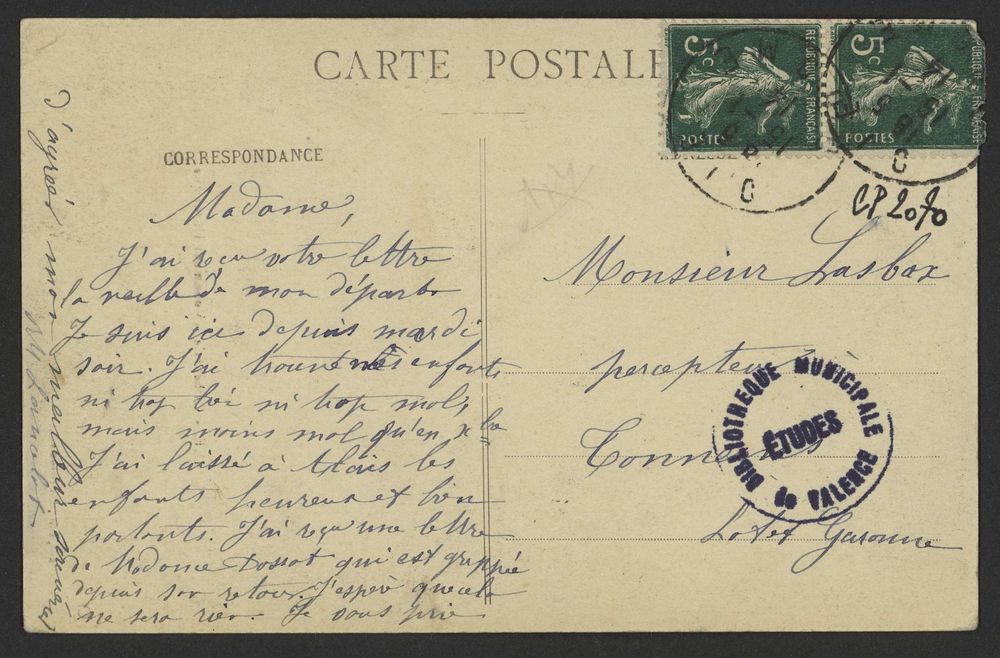 CARTE POSTALE
CORRESPONDANCE
Madame,
J'ai reçu votre lettre
la veille de mon départ.
Je suis ici depuis mardi
soir. J'ai trouvé mes enfants
ni trop bien ni trop mal,
mais moins mal qu'en
J'ai laissé à Alais les
enfants heureux et bien
portants. J'ai reçu une lettre
de Madame Dossat qui est grippée
depuis son retour. J'espère que cela
ne sera rien. Je vous prie
d'agréer mon meilleur souvenir
5c
REPUBLIQUE FRANÇAISE
POSTES
5c
REPUBLIQUE FRANÇAISE
POSTES
CP 2070
Monsieur Lasbax
percepteur à
Tonneins
Lot et Garonne
BIBLIOTHEQUE MUNICIPALE
ÉTUDES
de VALENCE